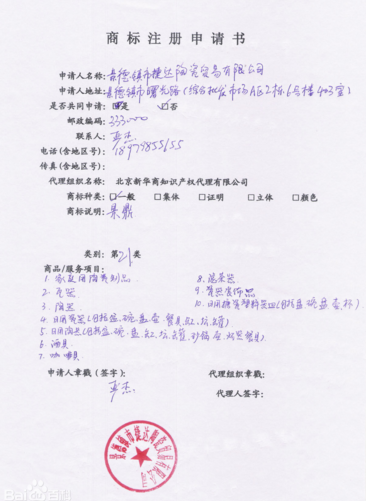 商标注册申请书
申请人名称：景德镇市捷达陶瓷贸易有限公司
申请人地址：景德镇市曙光路(综合批发市场A区2栋6号楼403室)
是否共同申请：□是 □否
邮政编码：333000
联系人：严杰
电话(含地区号)：18979855655
传真(含地区号)：
代理组织名称：北京新华商知识产权代理有限公司
商标种类：□一般 □集体 □证明 □立体 □颜色
商标说明：景鼎
类别：第21类
商品/服务项目：
1. 家庭用陶瓷制品
2. 瓷器
3. 陶器
4. 日用瓷器(包括盆、碗、盘、壶、餐具、缸、坛、罐)
5. 日用陶器(包括盆、碗、盘、缸、坛、罐、砂锅、壶、炊器餐具)
6. 酒具
7. 咖啡具
8. 瓷器
9. 瓷器装饰品
10. 日用搪瓷塑料器皿(包括盆、碗、盘、壶、杯)
申请人章戳(签字)：
严杰
代理组织章戳：
代理人签字：
景德镇市捷达陶瓷贸易有限公司
Baidu百科